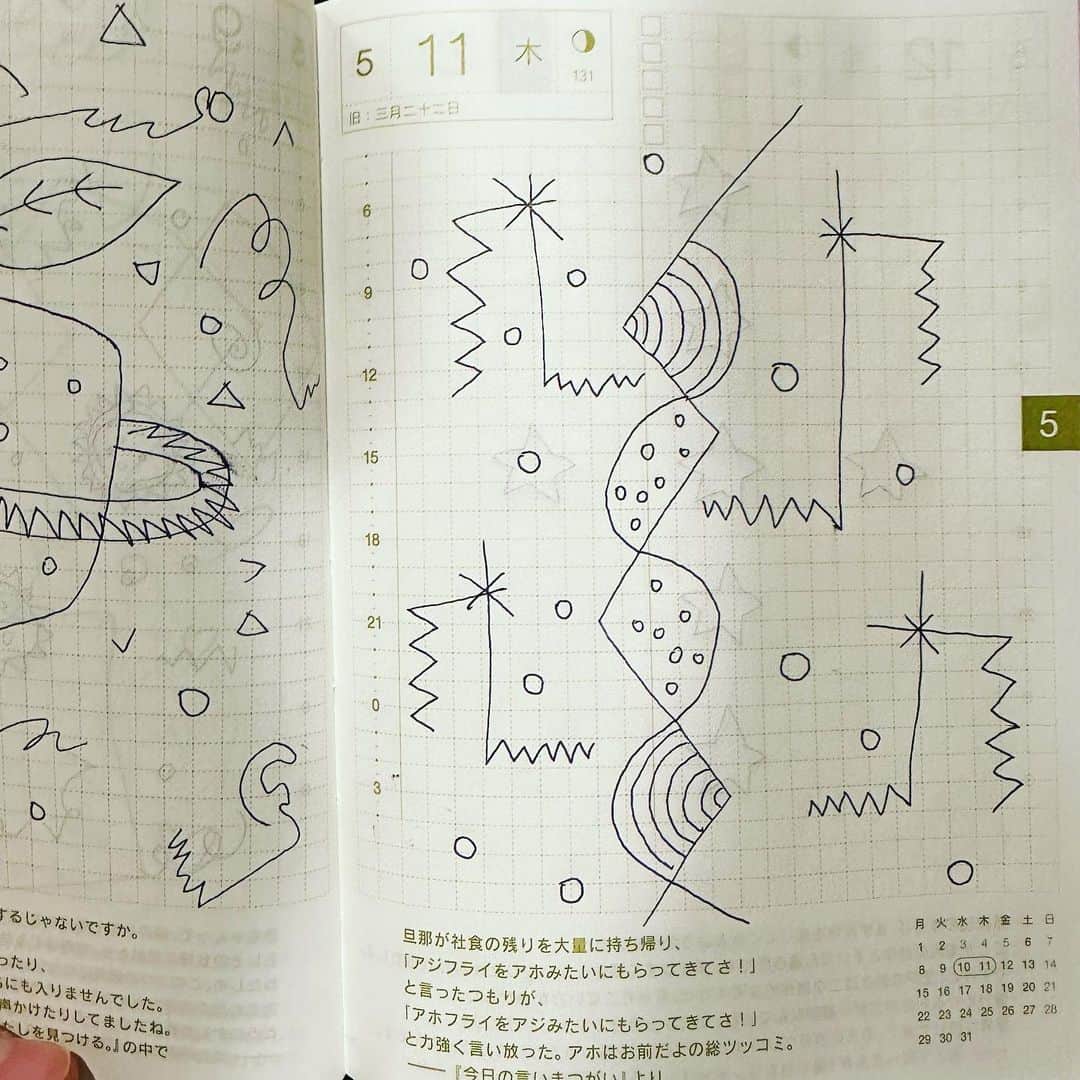 するじゃないですか。
ったり、
にも入りませんでした。
かけたりしてましたね。
たしを見つける。』の中で
5 11 木
131
旧：三月二十二日
6
9
12
15
18
21
0
3
5
旦那が社食の残りを大量に持ち帰り、
「アジフライをアホみたいにもらってきてさ！」
と言ったつもりが、
「アホフライをアジみたいにもらってきてさ！」
と力強く言い放った。アホはお前だよの総ツッコミ。
──『今日の言いまつがい』より
月 火 水 木 金 土 日
1 2 3 4 5 6 7
8 9 10 11 12 13 14
15 16 17 18 19 20 21
22 23 24 25 26 27 28
29 30 31